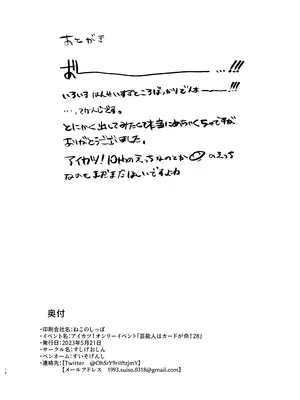 あとがき
お ...!!!
いろいろはんせいするところばっかりでんな !!!
...ってかんじです。
とにかく出してみたくて本当にめちゃくちゃですが
ありがとうございました。
アイカツ!10thのえっちなのとか のえっち
なのもまだまだほしいですよね
奥付
・印刷会社名:ねこのしっぽ
・イベント名:アイカツ!オンリーイベント「芸能人はカードが命!28」
・発行日:2023年5月21日
・サークル名:すしげおしん
・ペンネーム:すいそげんし
・連絡先:【Twitter @OhSrY9riIftzjmY】
【メールアドレス 1993.suiso.0318@gmail.com】